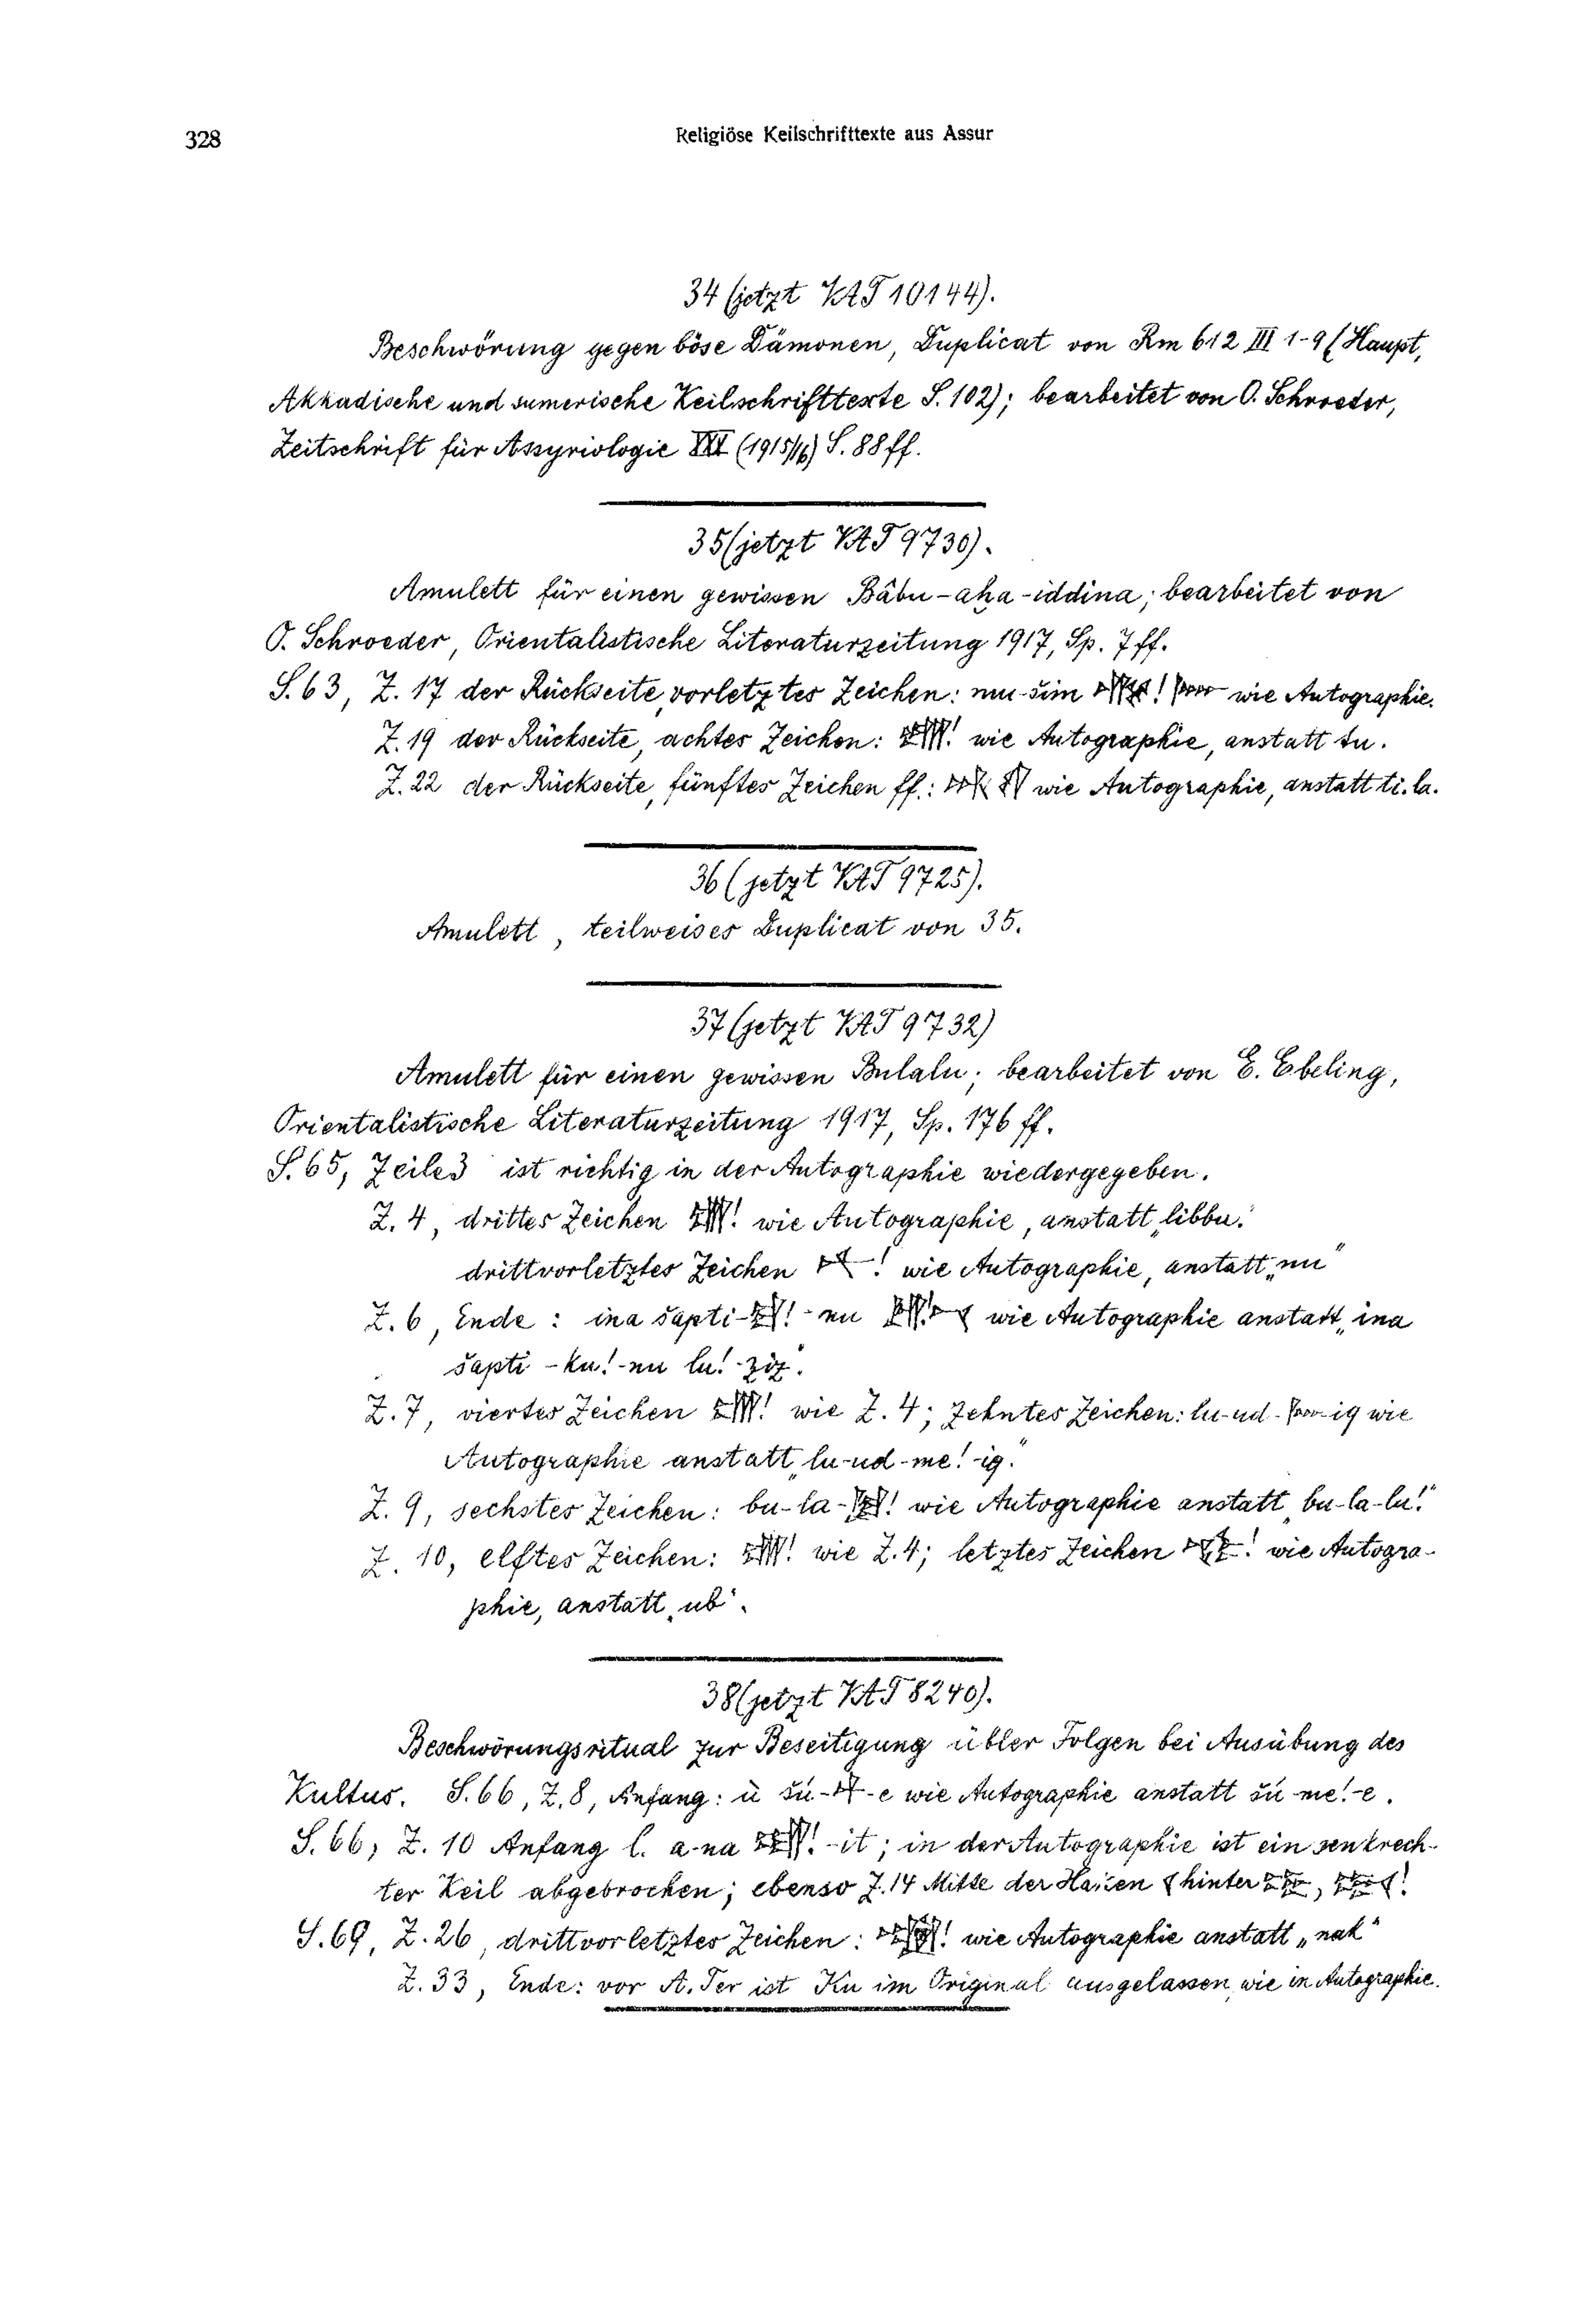 328
Religiöse Keilschrifttexte aus Assur
34 (jetzt VAT 10144).
Beschwörung gegen böse Dämonen, Duplicat von Rm 612 III 1-9 (Haupt,
Akkadische und sumerische Keilschrifttexte S. 102); bearbeitet von O. Schroeder,
Zeitschrift für Assyriologie (1915/16) S. 88 ff.
35 (jetzt VAT 9730).
Amulett für einen gewissen Bâbu-aḫa-iddina; bearbeitet von
O. Schroeder, Orientalistische Literaturzeitung 1917, Sp. 7 ff.
S. 63, Z. 17 der Rückseite, vorletztes Zeichen: nu-šim ! wie Autographie.
Z. 19 der Rückseite, achtes Zeichen: ! wie Autographie, anstatt su.
Z. 22 der Rückseite, fünftes Zeichen ff.: wie Autographie, anstatt ti.la.
36 (jetzt VAT 9725).
Amulett, teilweises Duplicat von 35.
37 (jetzt VAT 9732)
Amulett für einen gewissen Bulalu; bearbeitet von E. Ebeling,
Orientalistische Literaturzeitung 1917, Sp. 176 ff.
S. 65, Zeile 3 ist richtig in der Autographie wiedergegeben.
Z. 4, drittes Zeichen ! wie Autographie, anstatt „libbu."
drittvorletztes Zeichen ! wie Autographie, anstatt „nu"
Z. 6, Ende : ina šapti-!-nu ! wie Autographie anstatt „ina
šapti-ku!-nu lu!-ziz".
Z. 7, viertes Zeichen ! wie Z. 4; zehntes Zeichen: lu-ud--ig wie
Autographie anstatt „lu-ud-me!-ig."
Z. 9, sechstes Zeichen: bu-la-! wie Autographie anstatt „bu-la-lu!"
Z. 10, elftes Zeichen: ! wie Z. 4; letztes Zeichen ! wie Autogra-
phie, anstatt „ub".
38 (jetzt VAT 8240).
Beschwörungsritual zur Beseitigung übler Folgen bei Ausübung des
Kultus. S. 66, Z. 8, Anfang: ù šú--e wie Autographie anstatt šú-me!-e.
S. 66, Z. 10 Anfang l. a-na !-it; in der Autographie ist ein senkrech-
ter Keil abgebrochen; ebenso Z. 14 Mitte der Haken hinter , !
S. 69, Z. 26, drittvorletztes Zeichen: ! wie Autographie anstatt „nak"
Z. 33, Ende: vor A. Ter ist Ku im Original ausgelassen, wie in Autographie.